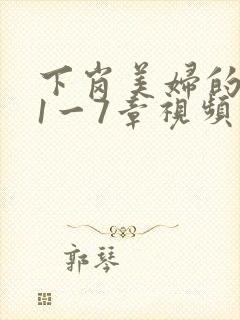 下岗美婦的
1一7章視頻
郭琴